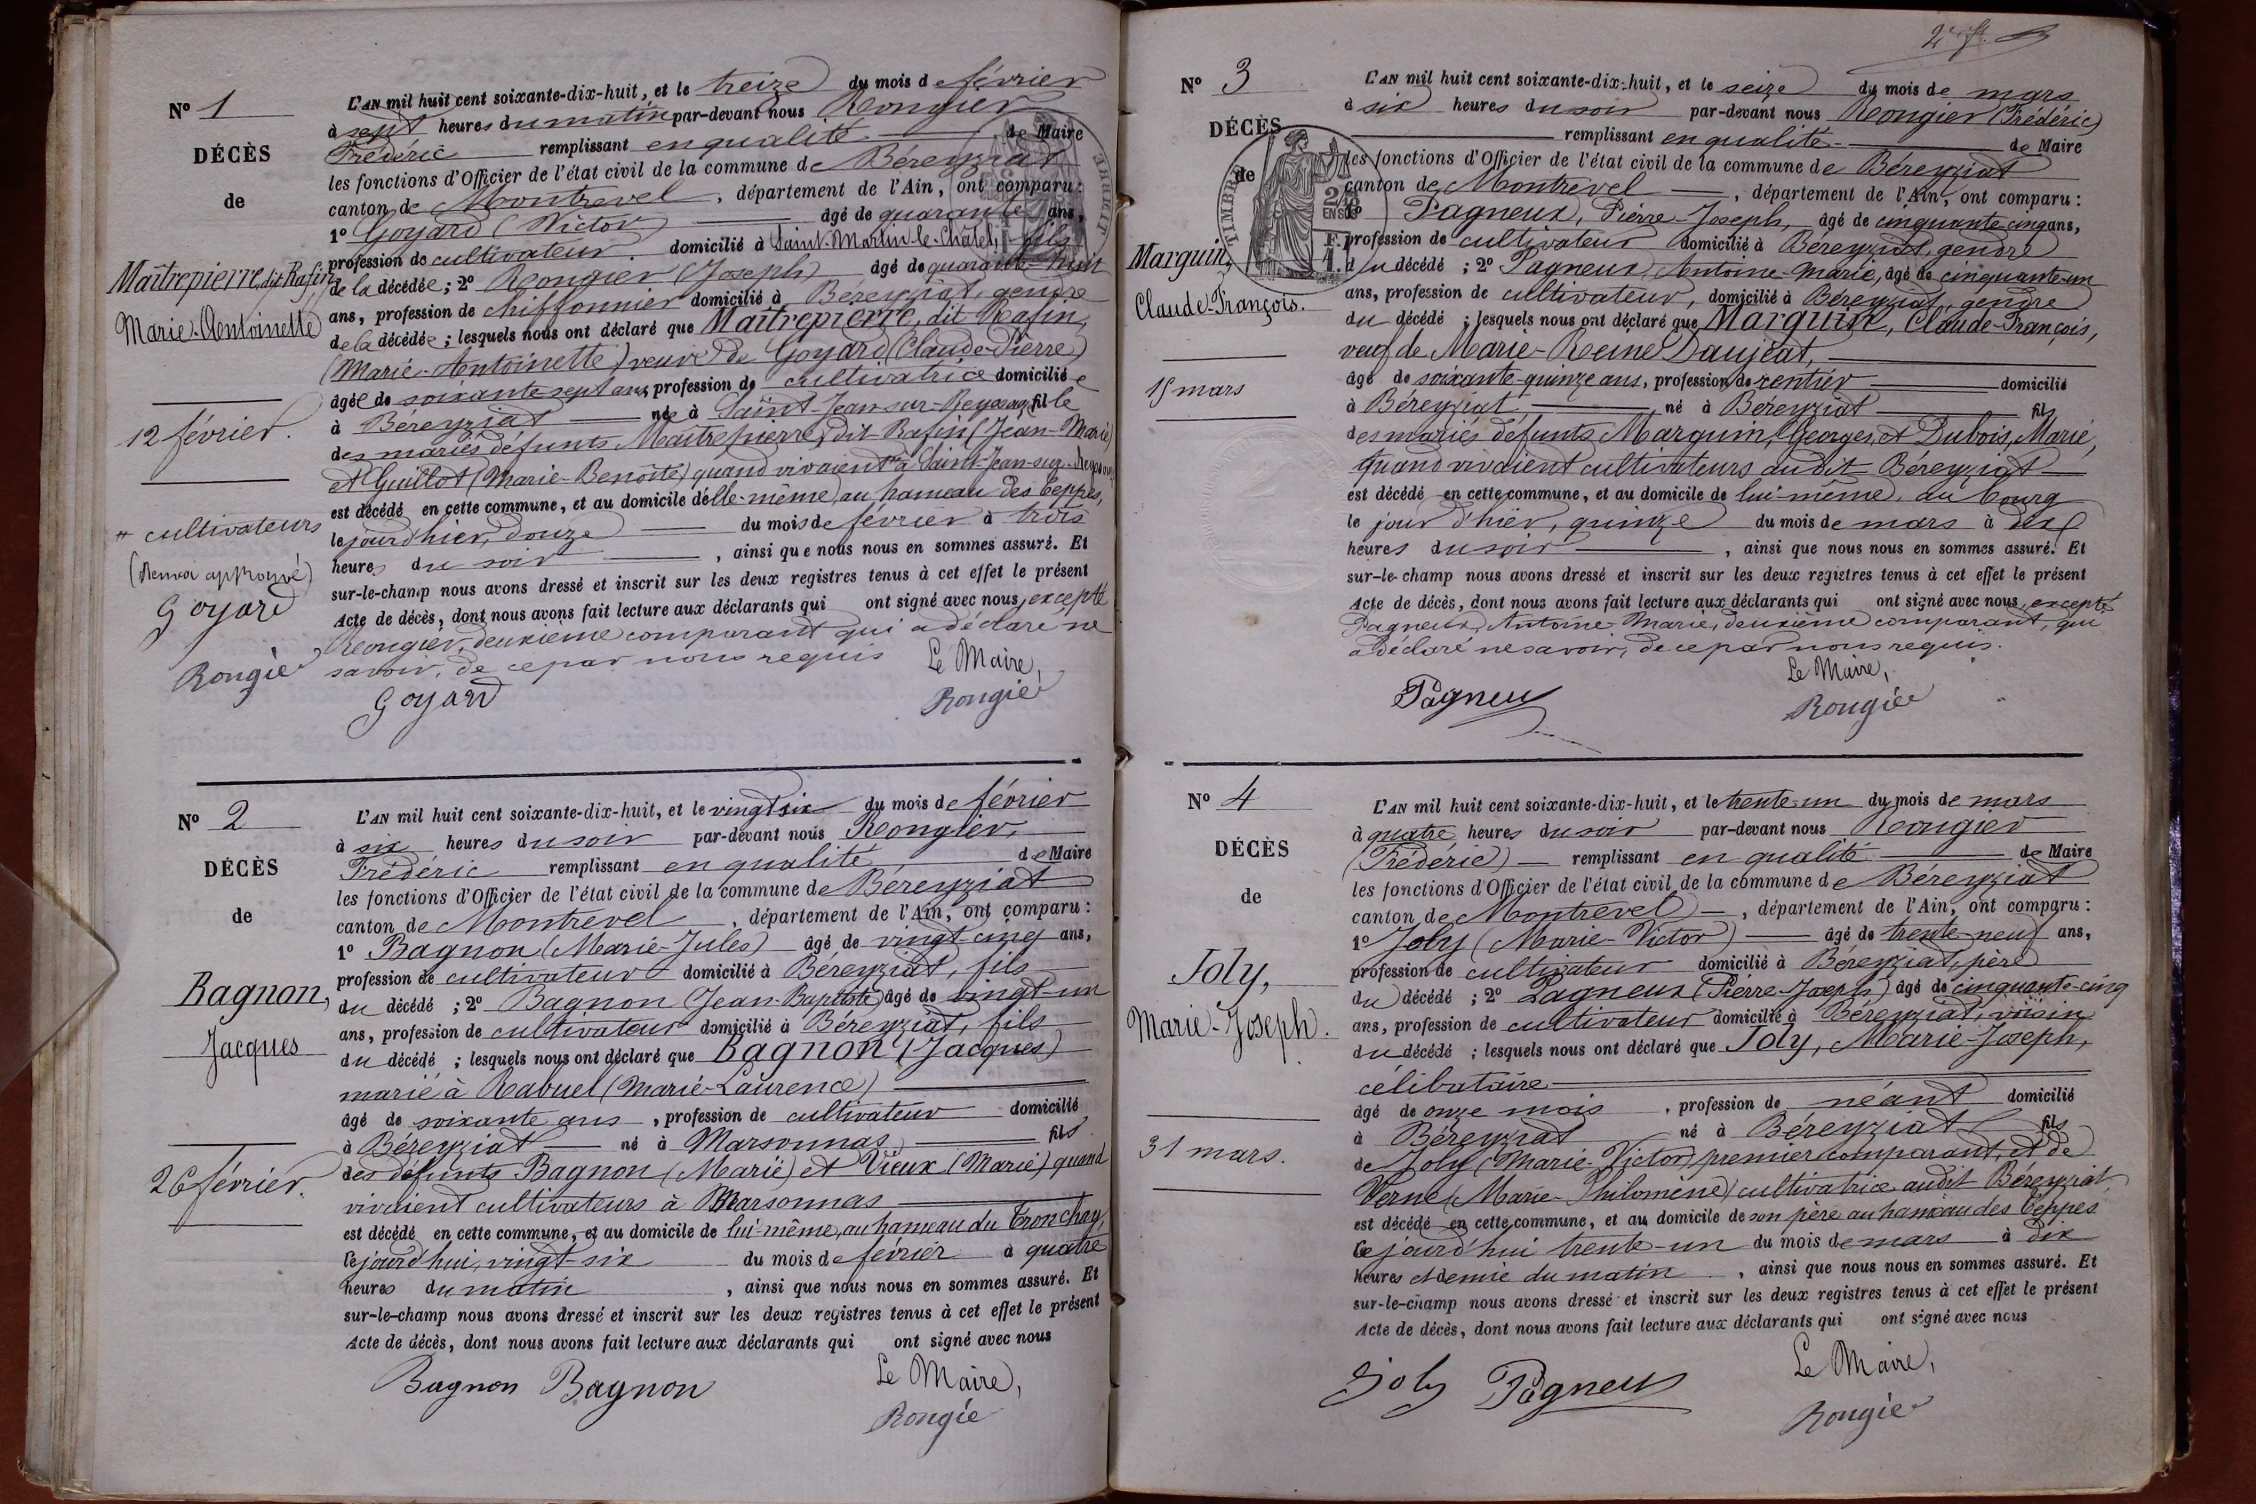 N° 1
DÉCÈS
de
Maîtrepierre, dit Rafin,
Marie-Antoinette
12 février.
" cultivateurs
(Renvoi approuvé)
Goyard
Rongier
L'AN mil huit cent soixante-dix-huit, et le treize du mois de février
à sept heures du matin par-devant nous Rongier
Frédéric remplissant en qualité de Maire
les fonctions d'Officier de l'état civil de la commune de Béreyziat
canton de Montrevel, département de l'Ain, ont comparu:
1° Goyard (Victor) âgé de quarante ans,
profession de cultivateur, domicilié à Saint-Martin-le-Châtel, fils
de la décédée; 2° Rongier (Joseph) âgé de quarante-huit
ans, profession de chiffonnier domicilié à Béreyziat, gendre
de la décédée; lesquels nous ont déclaré que Maîtrepierre, dit Rafin,
(Marie-Antoinette) veuve de Goyard (Claude-Pierre)
âgée de soixante-sept ans, profession de cultivatrice domiciliée
à Béreyziat née à Saint-Jean-sur-Reyssouze fille
des mariés défunts Maîtrepierre, dit Rafin (Jean-Marie)
et Guillot (Marie-Benoîte) quand vivaient " à Saint-Jean-sur-Reyssouze
est décédé en cette commune, et au domicile d'elle-même, au hameau des Teppes,
le jour d'hier, douze du mois de février à trois
heures du soir, ainsi que nous nous en sommes assuré. Et
sur-le-champ nous avons dressé et inscrit sur les deux registres tenus à cet effet le présent
Acte de décès, dont nous avons fait lecture aux déclarants qui ont signé avec nous, excepté
Rongier, deuxième comparant qui a déclaré ne
savoir, de ce par nous requis
Le Maire,
Goyard
Rongier
N° 2
DÉCÈS
de
Bagnon,
Jacques
26 février.
L'AN mil huit cent soixante-dix-huit, et le vingt-six du mois de février
à six heures du soir par-devant nous Rongier,
Frédéric remplissant en qualité de Maire
les fonctions d'Officier de l'état civil de la commune de Béreyziat
canton de Montrevel, département de l'Ain, ont comparu:
1° Bagnon (Marie-Jules) âgé de vingt-cinq ans,
profession de cultivateur domicilié à Béreyziat, fils
du décédé; 2° Bagnon (Jean-Baptiste) âgé de vingt-un
ans, profession de cultivateur domicilié à Béreyziat, fils
du décédé; lesquels nous ont déclaré que Bagnon (Jacques)
marié à Rabuel (Marie-Laurence)
âgé de soixante ans, profession de cultivateur domicilié
à Béreyziat né à Marsonnas fils
des défunts Bagnon (Marie) et Vieux (Marie) quand
vivaient cultivateurs à Marsonnas
est décédé en cette commune, et au domicile de lui-même, au hameau du Tronchay,
ce jourd'hui, vingt-six du mois de février à quatre
heures du matin, ainsi que nous nous en sommes assuré. Et
sur-le-champ nous avons dressé et inscrit sur les deux registres tenus à cet effet le présent
Acte de décès, dont nous avons fait lecture aux déclarants qui ont signé avec nous
Le Maire,
Bagnon Bagnon
Rongier
N° 3
DÉCÈS
de
Marguin,
Claude-François.
15 mars
L'AN mil huit cent soixante-dix-huit, et le seize du mois de mars
à six heures du soir par-devant nous Rongier (Frédéric)
remplissant en qualité de Maire
les fonctions d'Officier de l'état civil de la commune de Béreyziat
canton de Montrevel, département de l'Ain, ont comparu:
1° Pagneux, Pierre-Joseph, âgé de cinquante-cinq ans,
profession de cultivateur domicilié à Béreyziat, gendre
du décédé; 2° Pagneux, Antoine-Marie, âgé de cinquante-un
ans, profession de cultivateur, domicilié à Béreyziat, gendre
du décédé; lesquels nous ont déclaré que Marguin, Claude-François,
veuf de Marie-Reine Daujeat,
âgé de soixante-quinze ans, profession de rentier domicilié
à Béreyziat né à Béreyziat fils
des mariés défunts Marguin, Georges, et Dubois, Marie,
quand vivaient cultivateurs audit Béreyziat
est décédé en cette commune, et au domicile de lui-même, au bourg
le jour d'hier, quinze du mois de mars à dix
heures du soir, ainsi que nous nous en sommes assuré. Et
sur-le-champ nous avons dressé et inscrit sur les deux registres tenus à cet effet le présent
Acte de décès, dont nous avons fait lecture aux déclarants qui ont signé avec nous, excepté
Pagneux, Antoine-Marie, deuxième comparant, qui
a déclaré ne savoir, de ce par nous requis.
Le Maire,
Pagneux
Rongier
N° 4
DÉCÈS
de
Joly,
Marie-Joseph.
31 mars.
L'AN mil huit cent soixante-dix-huit, et le trente-un du mois de mars
à quatre heures du soir par-devant nous Rongier
(Frédéric) remplissant en qualité de Maire
les fonctions d'Officier de l'état civil de la commune de Béreyziat
canton de Montrevel, département de l'Ain, ont comparu:
1° Joly (Marie-Victor) âgé de trente-neuf ans,
profession de cultivateur domicilié à Béreyziat, père
du décédé; 2° Pagneux (Pierre-Joseph) âgé de cinquante-cinq
ans, profession de cultivateur domicilié à Béreyziat, voisin
du décédé; lesquels nous ont déclaré que Joly, Marie-Joseph,
célibataire
âgé de onze mois, profession de néant domicilié
à Béreyziat né à Béreyziat fils
de Joly (Marie-Victor) premier comparant, et de
Verne (Marie-Philomène) cultivatrice audit Béreyziat,
est décédé en cette commune, et au domicile de son père au hameau des Teppes
ce jourd'hui trente-un du mois de mars à dix
heures et demie du matin, ainsi que nous nous en sommes assuré. Et
sur-le-champ nous avons dressé et inscrit sur les deux registres tenus à cet effet le présent
Acte de décès, dont nous avons fait lecture aux déclarants qui ont signé avec nous
Le Maire,
Joly Pagneux
Rongier